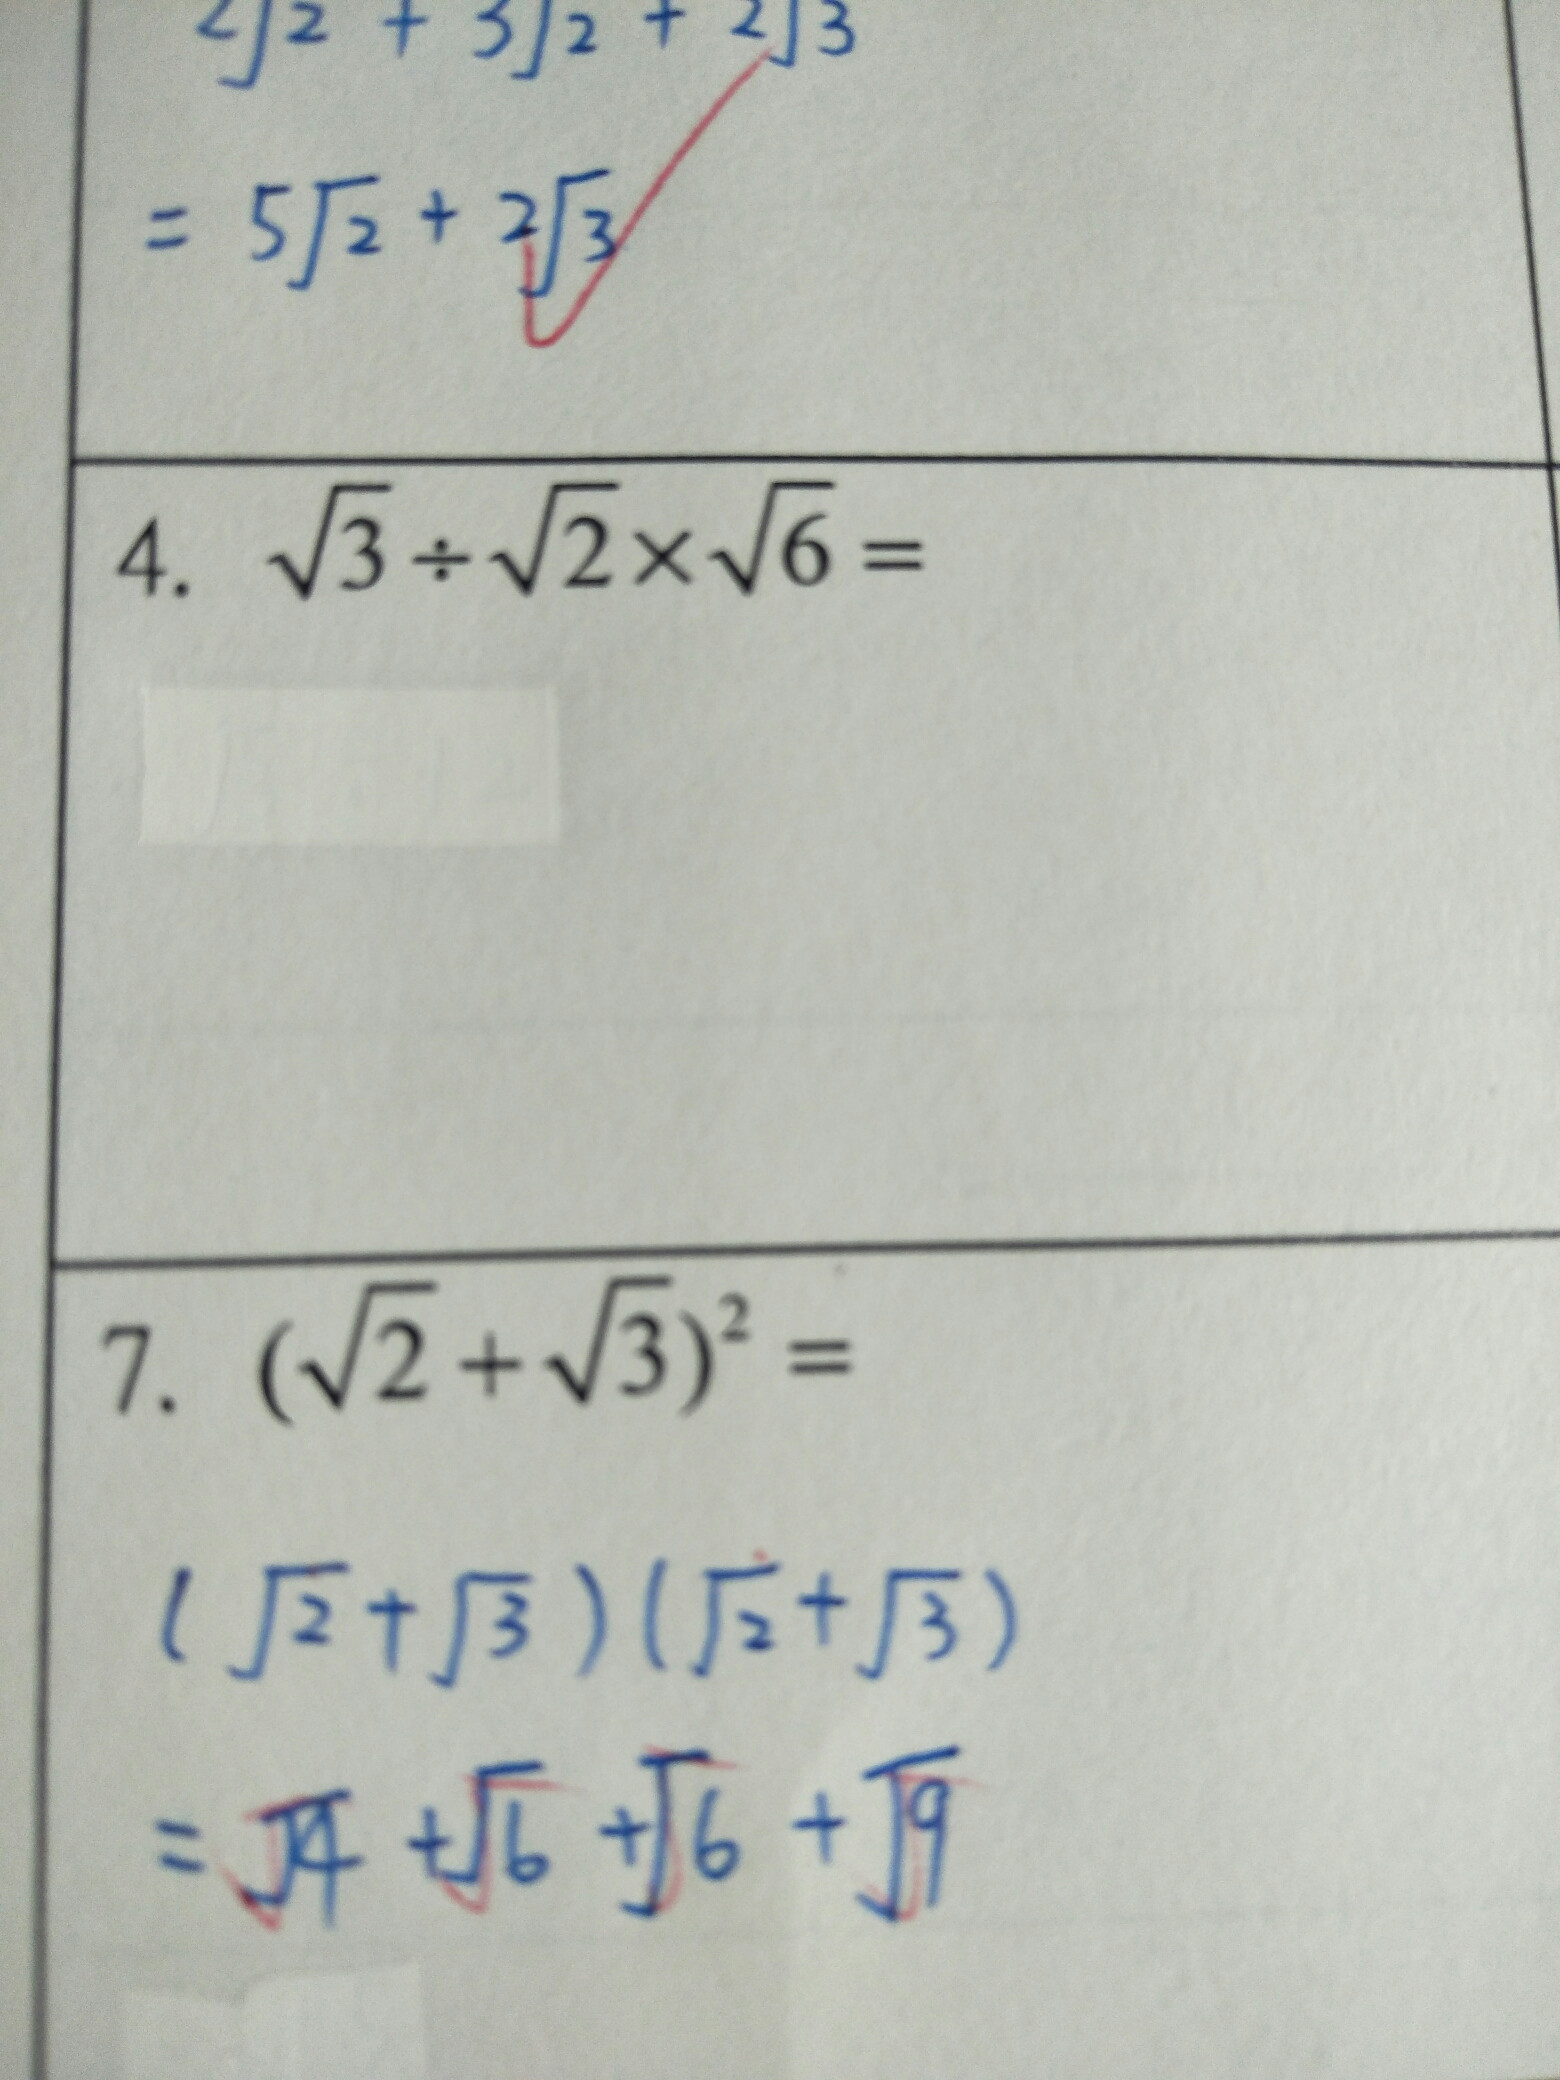 2√2 + 3√2 + 2√3
= 5√2 + 2√3
4. √3 ÷ √2 × √6 =
7. (√2 + √3)² =
(√2 + √3)(√2 + √3)
= √4 + √6 + √6 + √9